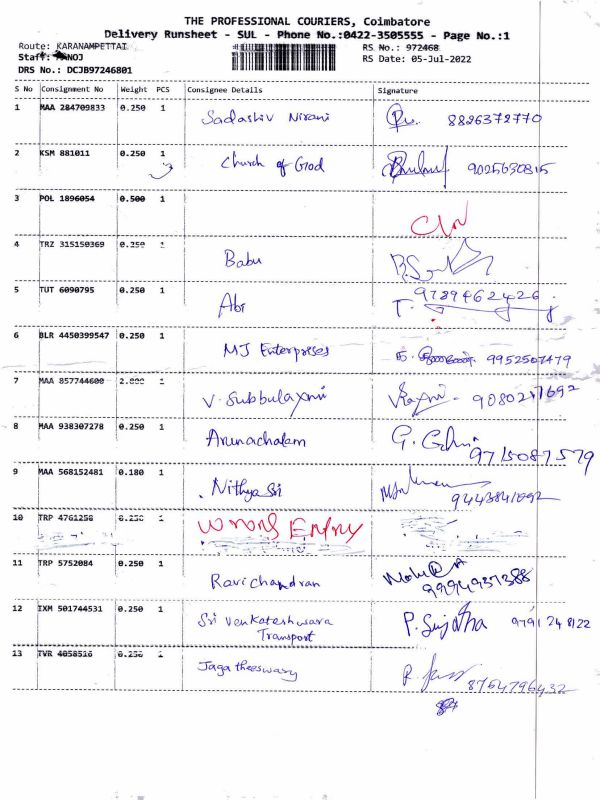 THE PROFESSIONAL COURIERS, Coimbatore
Delivery Runsheet - SUL - Phone No.:0422-3505555 - Page No.:1
Route: KARANAMPETTAI RS No.: 972468
Staff: MANOJ RS Date: 05-Jul-2022
DRS No.: DCJB97246801
S No Consignment No Weight PCS Consignee Details Signature
1 MAA 284709833 0.250 1 Sadashiv Nirani 8826372770
2 KSM 881011 0.250 1 Church of God 9025630815
3 POL 1896054 0.500 1
4 TRZ 315150369 0.250 1 Babu
5 TUT 6090795 0.250 1 Abi T. 9789462426
6 BLR 4450399547 0.250 1 MJ Enterprises 9952507479
7 MAA 857744600 2.000 1 V. Subbulaxmi
8 MAA 938307278 0.250 1 Arunachalam 9715087579
9 MAA 568152481 0.180 1 Nithya Sri
10 TRP 4761258 0.250 1 Wrong Entry
11 TRP 5752084 0.250 1 Ravichandran 9994937388
12 IXM 501744531 0.250 1 Sri Venkateshwara P. Sujatha 9791248122
Transport
13 TVR 4058516 0.250 1 Jagatheeswary 8754796432